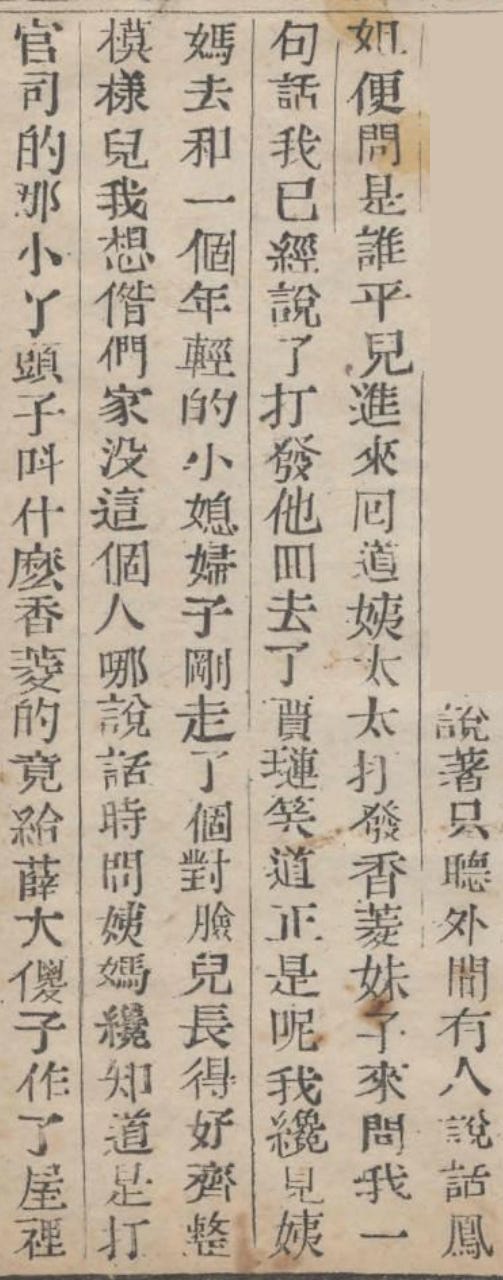 說著只聽外間有人說話鳳
姐便問是誰平兒進來回道姨太太打發香菱妹子來問我一
句話我已經說了打發他回去了賈璉笑道正是呢我纔見姨
媽去和一個年輕的小媳婦子剛走了個對臉兒長得好齊整
模樣兒我想偺們家没這個人哪說話時問姨媽纔知道是打
官司的那小丫頭子叫什麽香菱的竟給薛大傻子作了屋裡